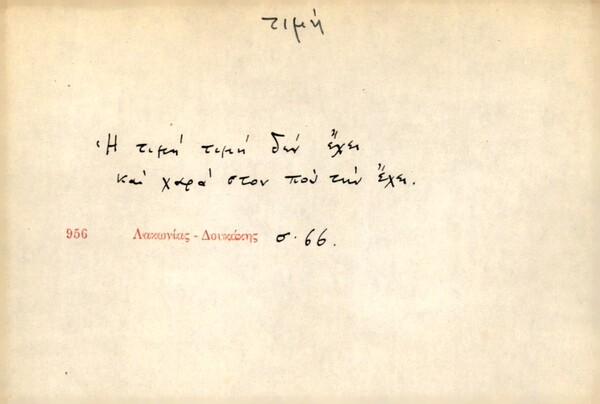 τιμή
Ἡ τιμή τιμή δέν ἔχει
καί χαρά στον πού τήν ἔχει.
956 Λακωνίας - Δουκάκης σ. 66.